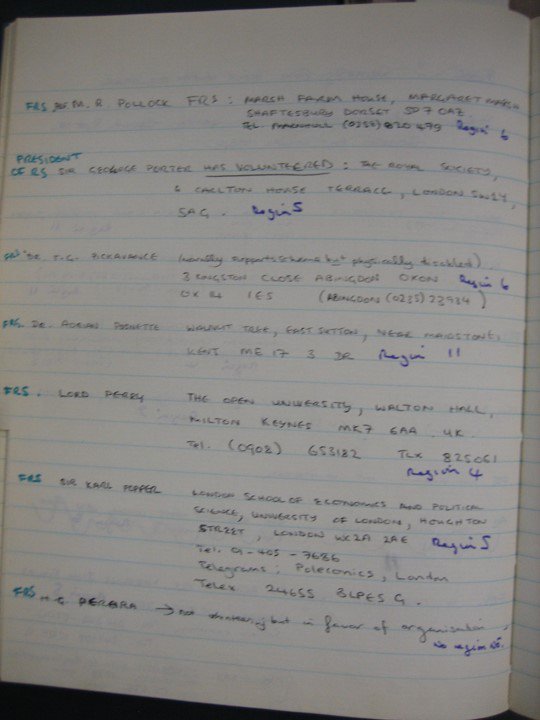 FRS Prof M. R. POLLOCK FRS : MARSH FARM HOUSE, MARGARET MARSH
SHAFTESBURY DORSET SP7 0AZ.
TEL MARNHULL (0258) 820 479 Region 6
PRESIDENT
OF RS SIR GEORGE PORTER HAS VOLUNTEERED : THE ROYAL SOCIETY,
6 CARLTON HOUSE TERRACE, LONDON SW1Y,
5AG. Region 5
FRS DR. T.G. PICKAVANCE (morally supports schema but physically disabled).
3 KINGSTON CLOSE ABINGDON OXON Region 6
OX14 1ES (ABINGDON (0235) 23934)
FRS. DR. ADRIAN POSNETTE WALNUT TREE, EAST SUTTON, NEAR MAIDSTONE,
KENT ME 17 3 DR Region 11
FRS. LORD PERRY THE OPEN UNIVERSITY, WALTON HALL,
MILTON KEYNES MK7 6AA. UK.
Tel. (0908) 653182 TLX 825061
Region 4
FRS SIR KARL POPPER LONDON SCHOOL OF ECONOMICS AND POLITICAL
SCIENCE, UNIVERSITY OF LONDON, HOUGHTON
STREET, LONDON WC2A 2AE Region 5
Tel. 01-405-7686
Telegrams; Poleconics, London
Telex 24655 BLPES G.
FRS H.G. PEREIRA → not volunteering but in favor of organisation,
No region No.